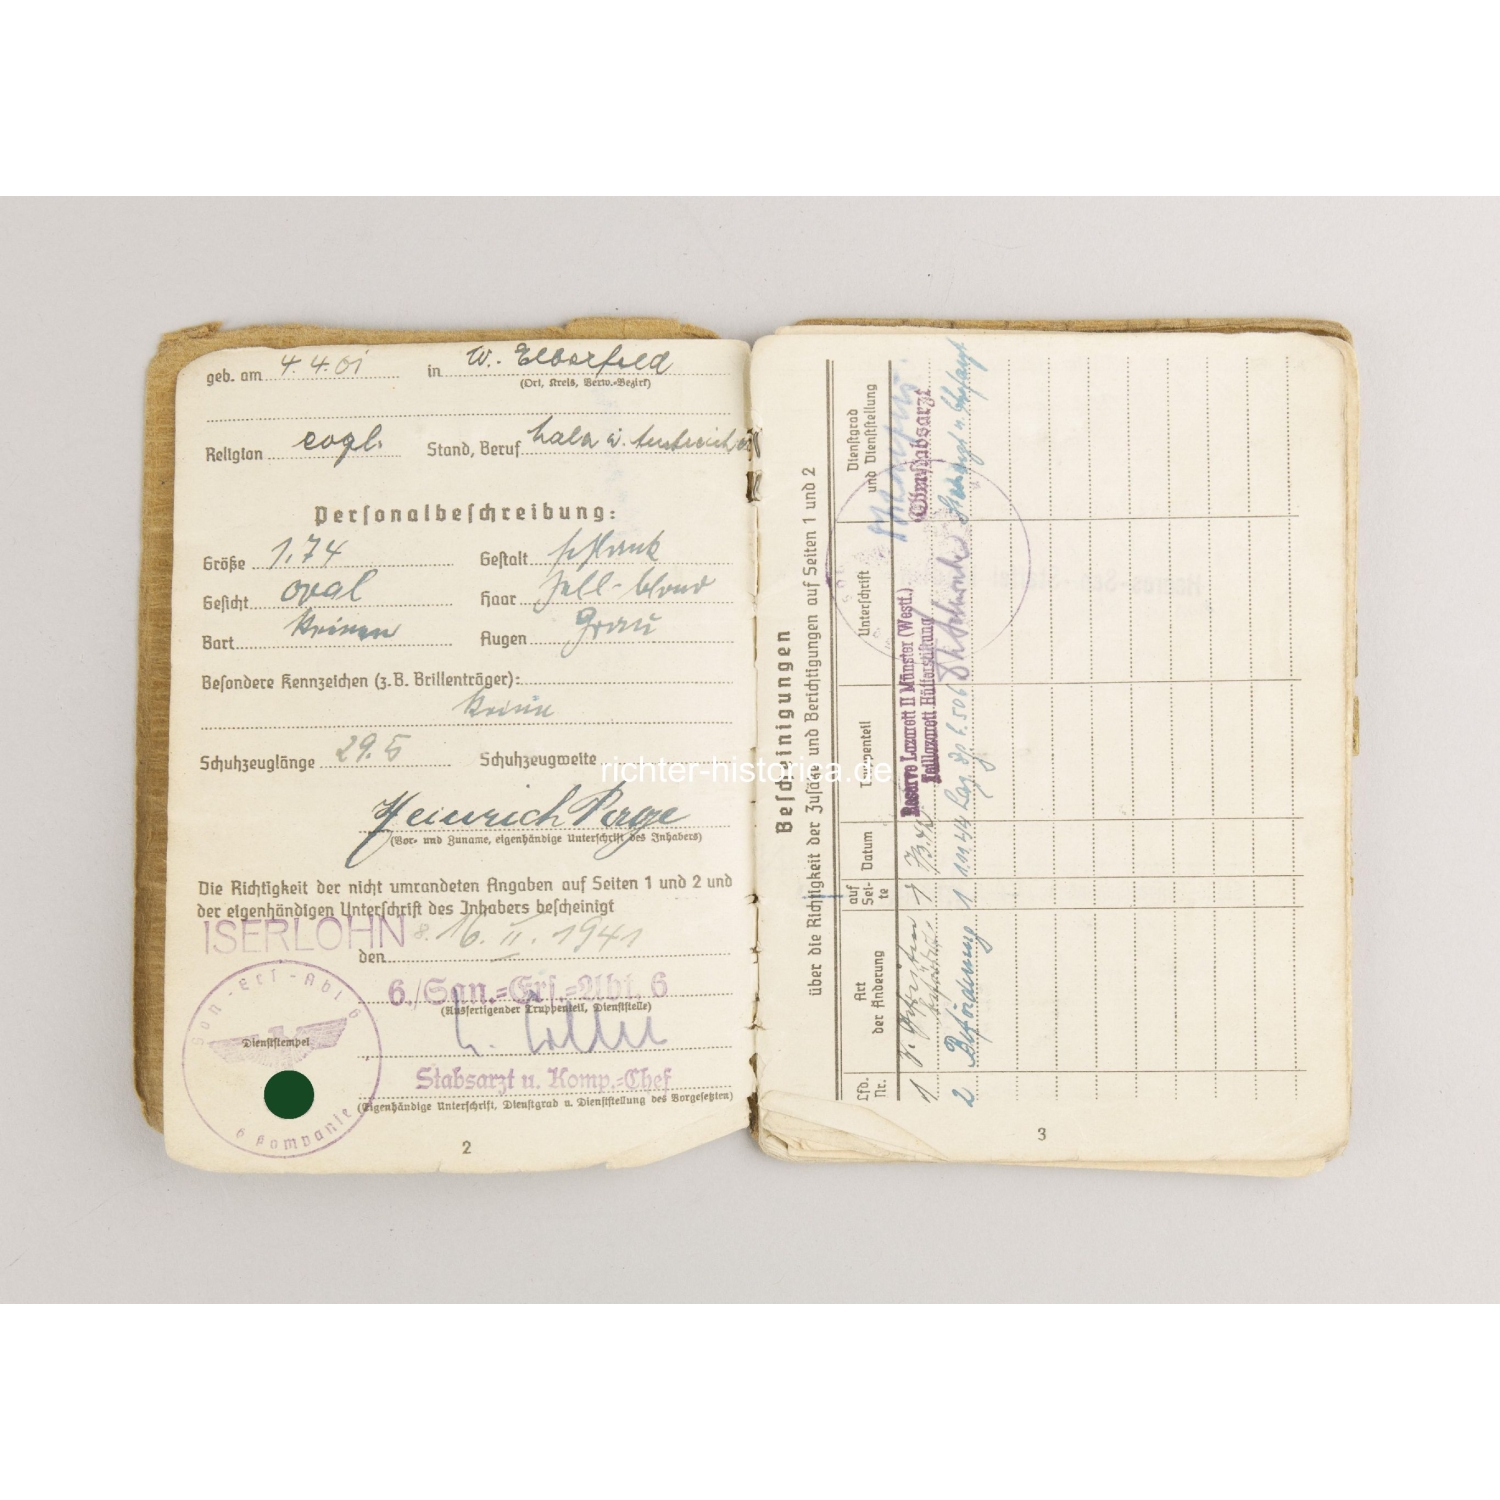 geb. am 4. 4. 01 in W. Elberfeld
(Ort, Kreis, Verw.-Bezirk)
Religion evgl. Stand, Beruf
Personalbeschreibung:
Größe 1,74 Gestalt schlank
Gesicht oval Haar hell-blond
Bart keinen Augen grau
Besondere Kennzeichen (z.B. Brillenträger):
keine
Schuhzeuglänge 29.5 Schuhzeugweite
Heinrich
(Vor- und Zuname, eigenhändige Unterschrift des Inhabers)
Die Richtigkeit der nicht umrandeten Angaben auf Seiten 1 und 2 und
der eigenhändigen Unterschrift des Inhabers bescheinigt
ISERLOHN
den 16. II. 1941
6./San.=Ers.=Abt. 6
(Ausfertigender Truppenteil, Dienststelle)
San-Ers-Abt 6
Dienststempel
6 Kompanie
Stabsarzt u. Komp.=Chef
(Eigenhändige Unterschrift, Dienstgrad u. Dienststellung des Vorgesetzten)
2
Bescheinigungen
über die Richtigkeit der Zusätze und Berichtigungen auf Seiten 1 und 2
Lfd. Nr.
Art der Änderung
auf Seite
Datum
Truppenteil
Unterschrift
Dienstgrad und Dienststellung
1
1
Reserve Lazarett II Münster (Westf.)
Teillazarett Hüfferstiftung
Oberstabsarzt
2 Beförderung 1
3
richter-historica.de